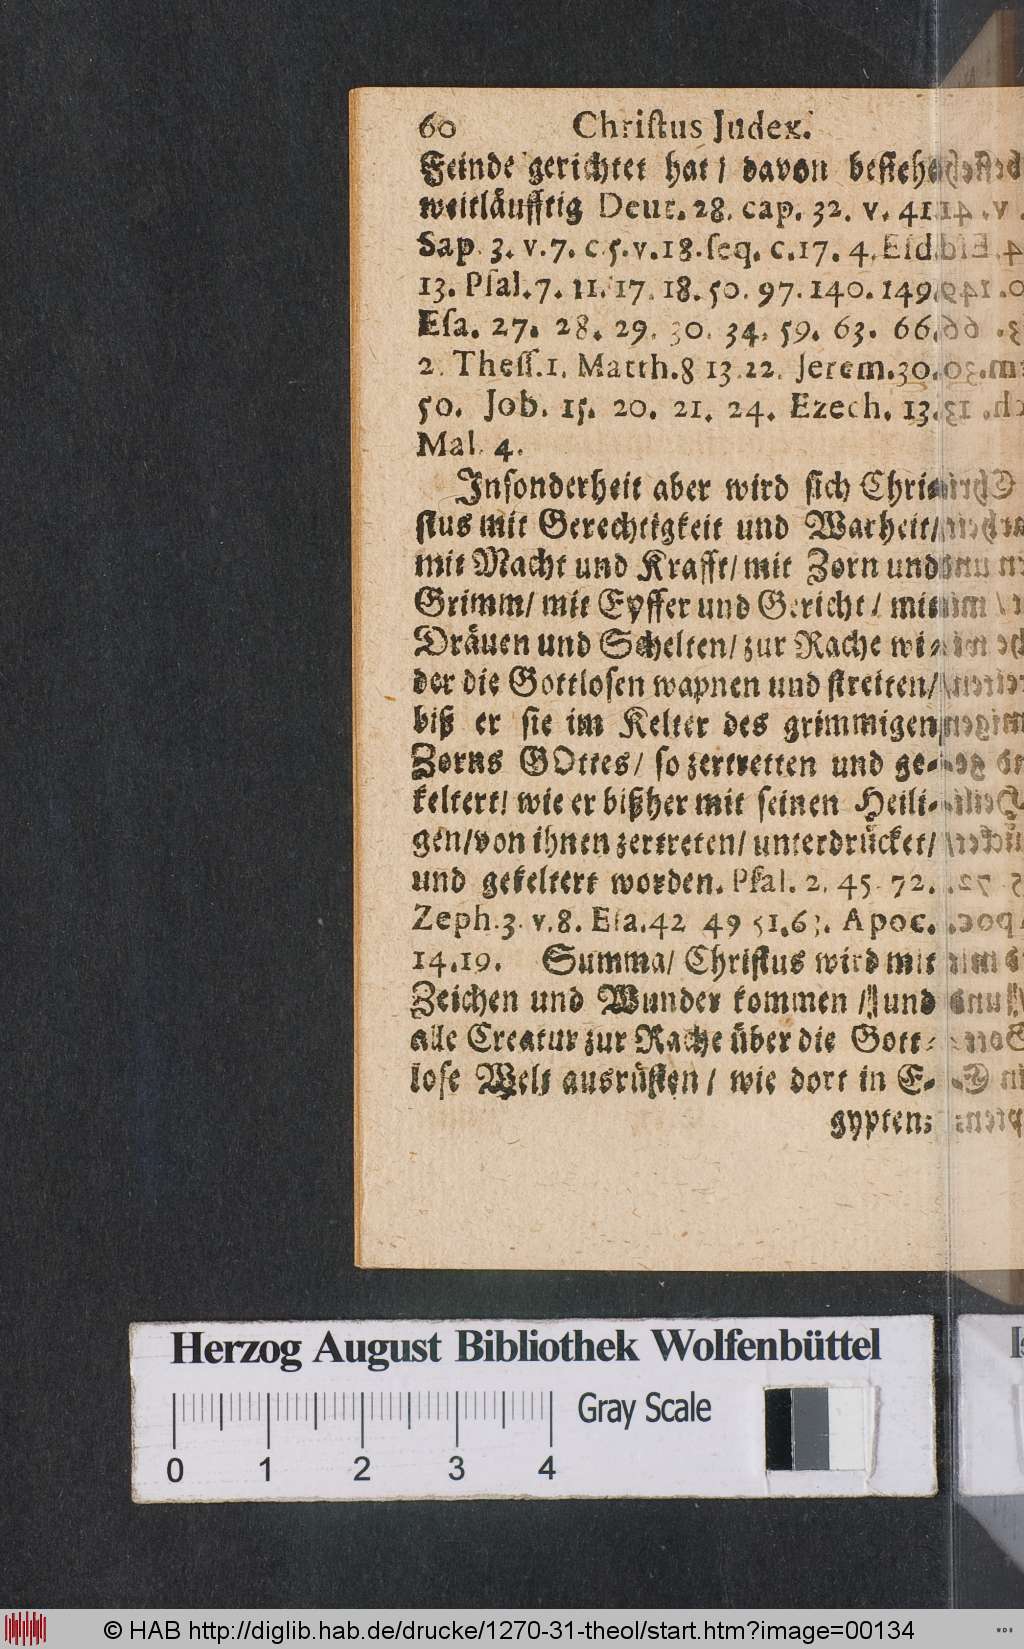 60 Christus Judex.
Feinde gerichtet hat / davon besiehe
weitläufftig Deut. 28. cap. 32. v. 41.
Sap. 3. v. 7. c. 5. v. 18. seq. c. 17. 4. Esd.
13. Psal. 7. 11. 17. 18. 50. 97. 140. 149.
Esa. 27. 28. 29. 30. 34. 59. 63. 66.
2. Thess. 1. Matth. 8 13. 22. Jerem. 30.
50. Job. 15. 20. 21. 24. Ezech. 13.
Mal. 4.
Insonderheit aber wird sich Chri-
stus mit Gerechtigkeit und Warheit /
mit Macht und Krafft / mit Zorn und
Grimm / mit Eyffer und Gericht / mit
Dräuen und Schelten / zur Rache wi-
der die Gottlosen wapnen und streiten /
biß er sie im Kelter des grimmigen
Zorns GOttes / so zertretten und ge-
keltert / wie er bißher mit seinen Heili-
gen / von ihnen zertreten / unterdrücket /
und gekeltert worden. Psal. 2. 45. 72.
Zeph. 3. v. 8. Esa. 42 49 51. 63. Apoc.
14. 19. Summa / Christus wird mit
Zeichen und Wunder kommen / und
alle Creatur zur Rache über die Gott-
lose Welt ausrüsten / wie dort in E-
gypten;
Herzog August Bibliothek Wolfenbüttel
Gray Scale
0 1 2 3 4
© HAB http://diglib.hab.de/drucke/1270-31-theol/start.htm?image=00134